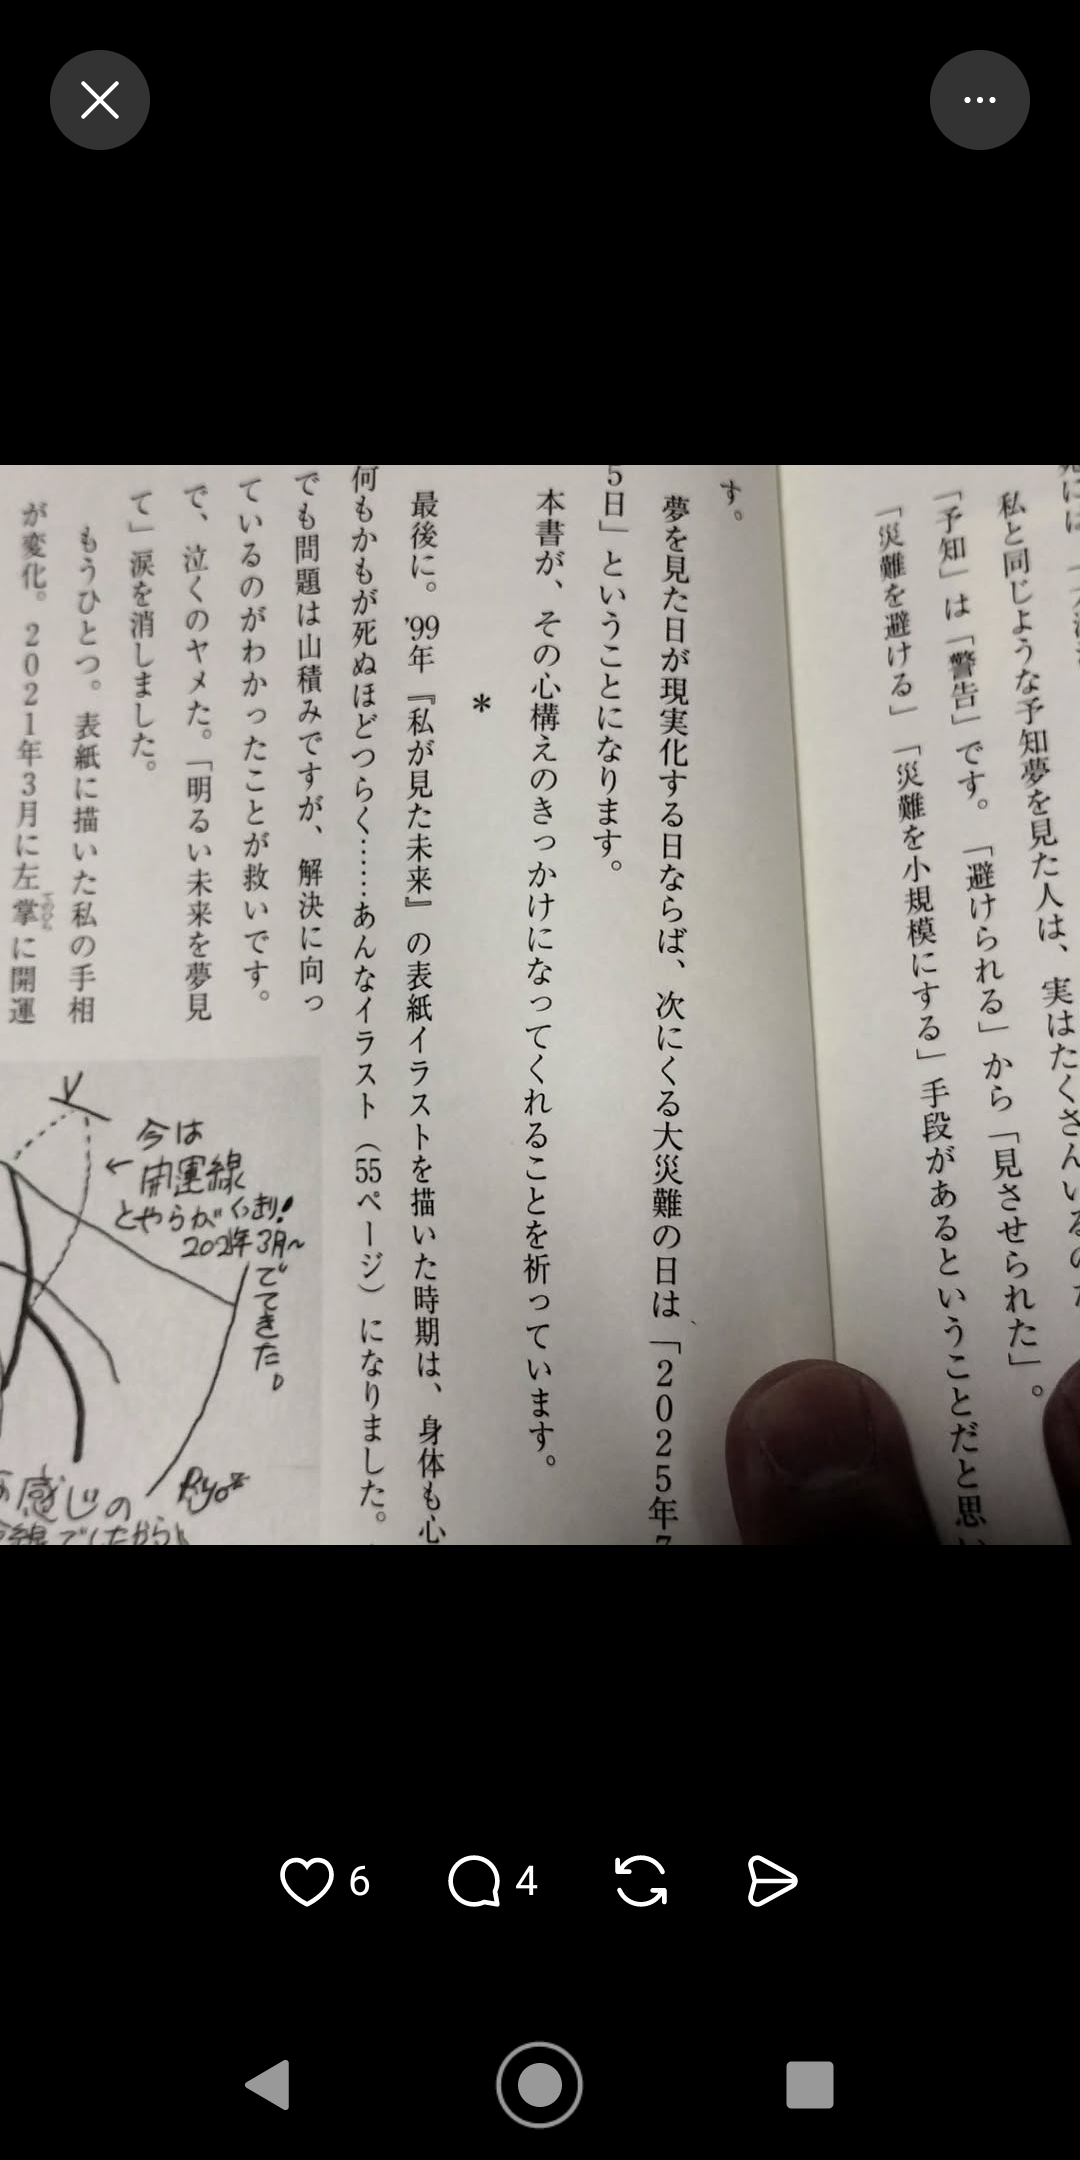 私と同じような予知夢を見た人は、実はたくさんいるのだ
「予知」は「警告」です。「避けられる」から「見させられた」。
「災難を避ける」「災難を小規模にする」手段があるということだと思い
す。
夢を見た日が現実化する日ならば、次にくる大災難の日は「2025年7
5日」ということになります。
本書が、その心構えのきっかけになってくれることを祈っています。
*
最後に。'99年『私が見た未来』の表紙イラストを描いた時期は、身体も心
何もかもが死ぬほどつらく……あんなイラスト(55ページ)になりました。
でも問題は山積みですが、解決に向っ
ているのがわかったことが救いです。
で、泣くのヤメた。「明るい未来を夢見
て」涙を消しました。
もうひとつ。表紙に描いた私の手相
が変化。2021年3月に左掌に開運
今は
←開運線
とやらが
2021年3月~
でてきた。
感じの
でしたから
6
4